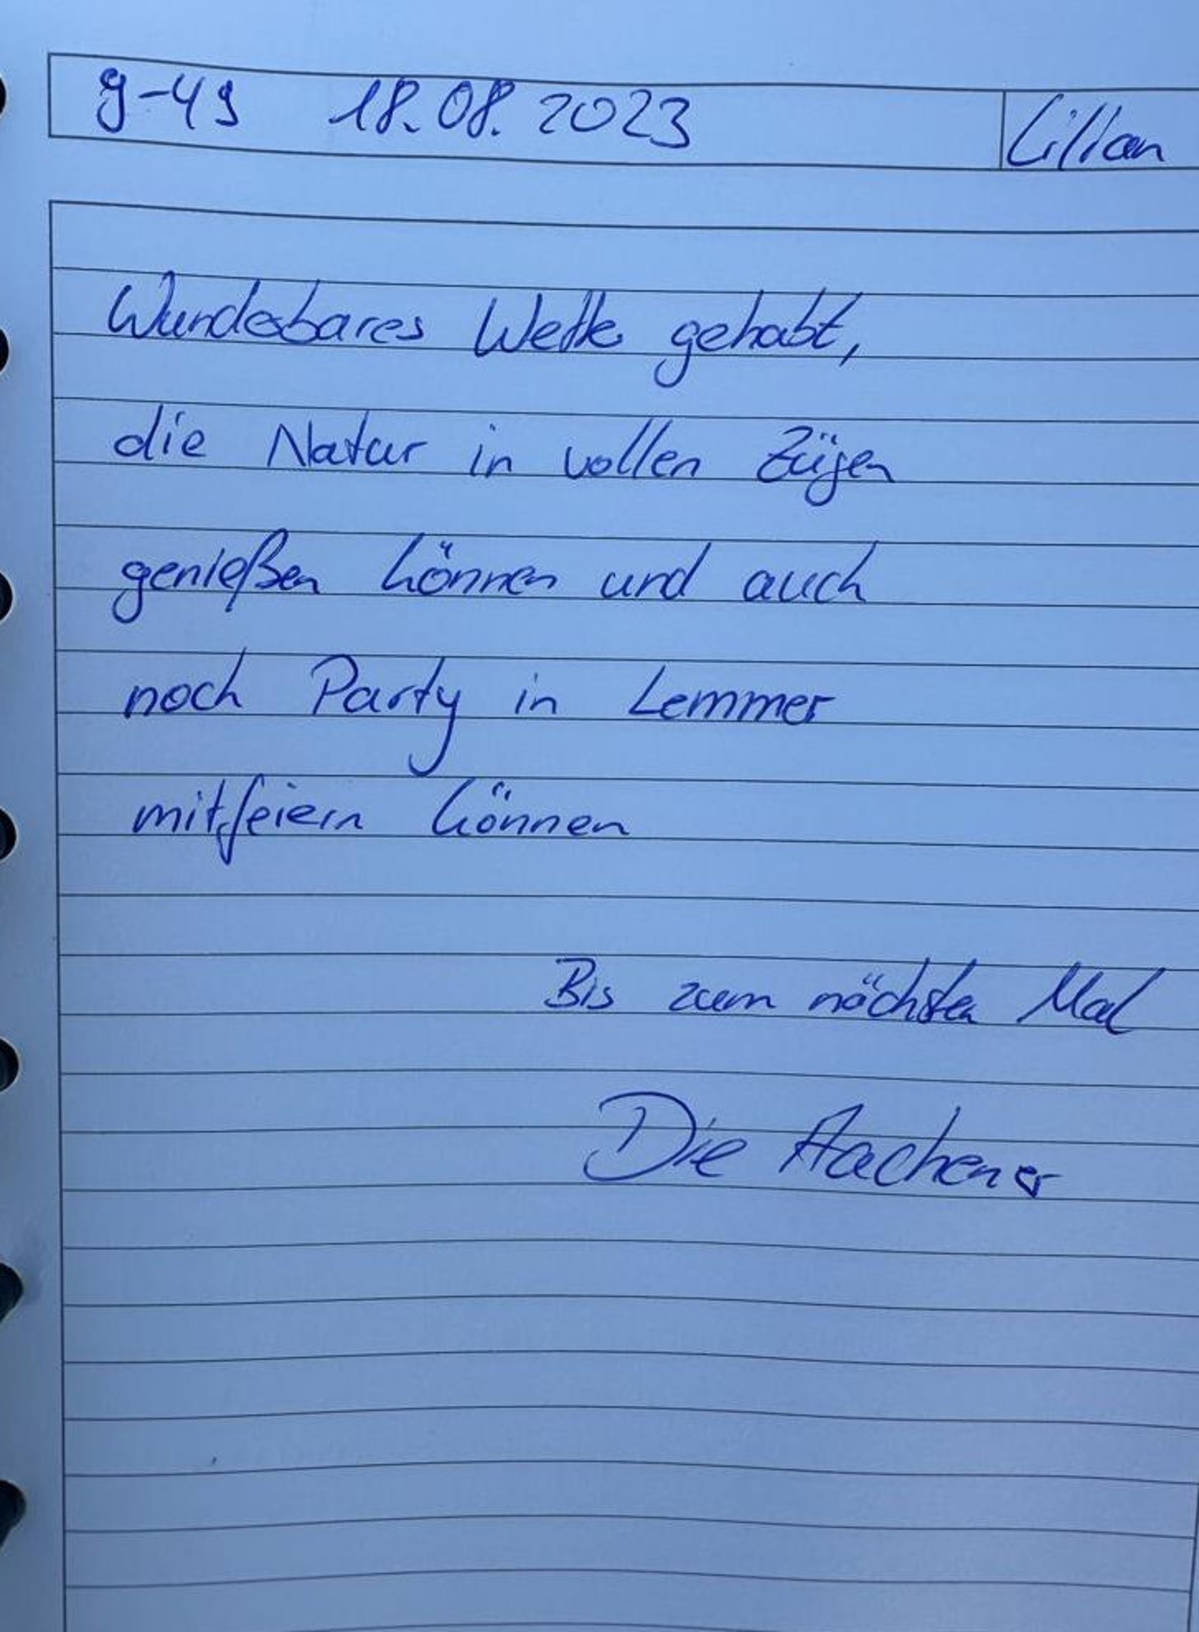 18.08.2023
Lillan
Wunderbares Wetter gehabt,
die Natur in vollen Zügen
genießen können und auch
noch Party in Lemmer
mitfeiern können
Bis zum nächsten Mal
Die Aachener